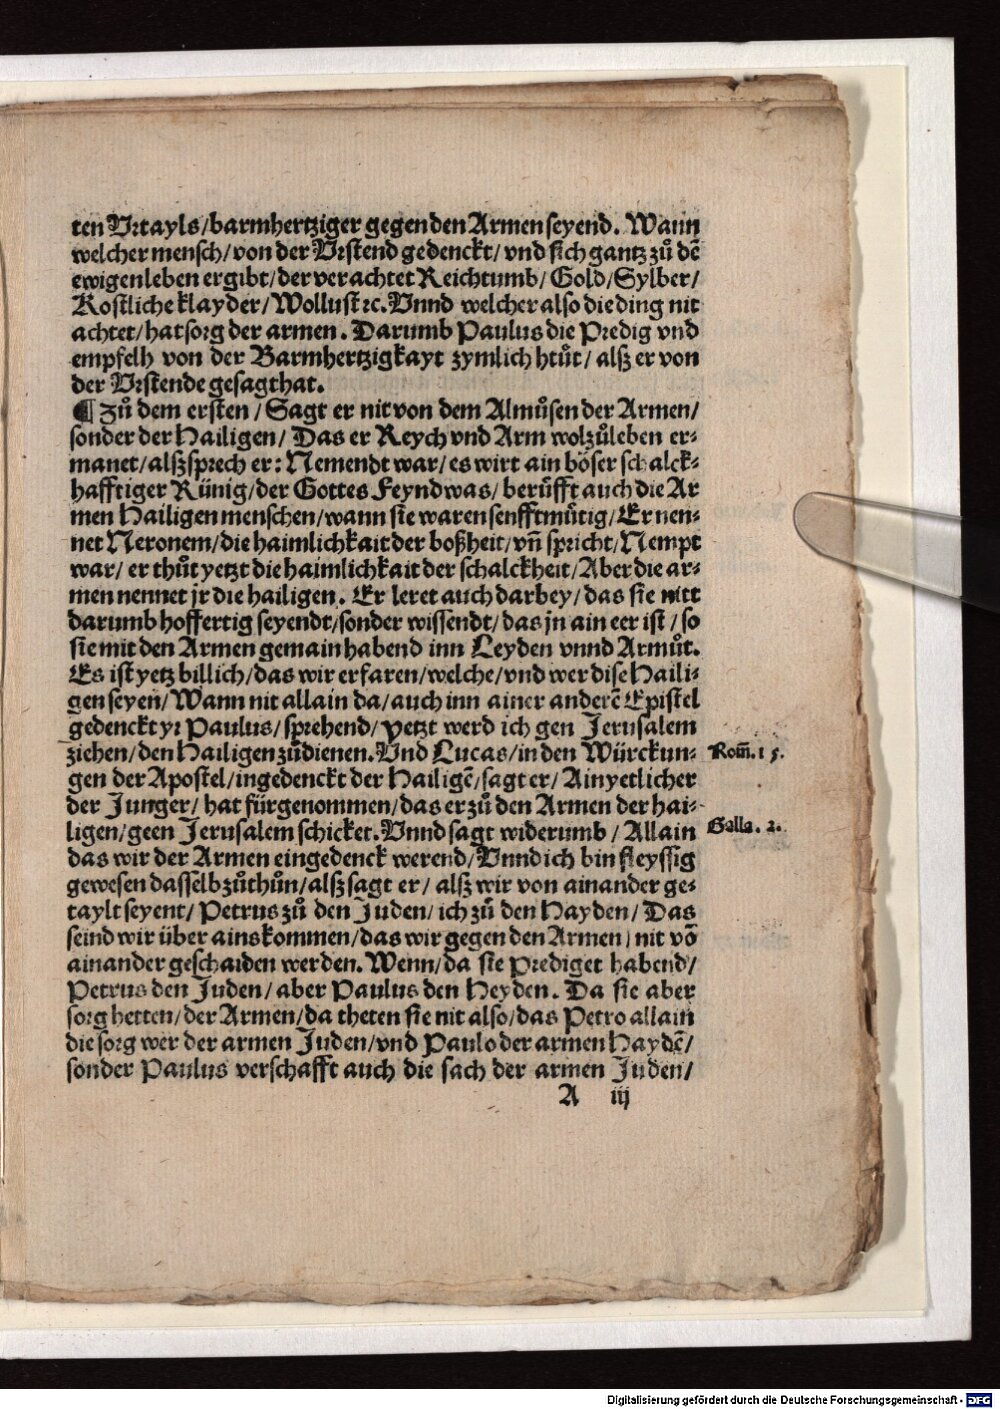 ten Vrtayls/barmhertziger gegen den Armen seyend. Wann
welcher mensch/von der Vrstend gedenckt/vnd sich gantz zů dē
ewigen leben ergibt/der verachtet Reichtumb/Gold/Sylber/
Kostliche klayder/Wollust ꝛc. Vnnd welcher also die ding nit
achtet/hat sorg der armen. Darumb Paulus die Predig vnd
empfelh von der Barmhertzigkayt zymlich htůt/alsz er von
der Vrstende gesagt hat.
¶ Zů dem ersten/Sagt er nit von dem Almůsen der Armen/
sonder der Hailigen/Das er Reych vnd Arm wol zůleben er⸗
manet/alsz sprech er: Nemendt war/es wirt ain böser schalck⸗
hafftiger Künig/der Gottes Feynd was/berůfft auch die Ar
men Hailigen menschen/wann sie waren senfftmůtig/Er nen⸗
net Neronem/die haimlichkait der boßheit/vñ spricht/Nempt
war/er thůt yetzt die haimlichkait der schalckheit/Aber die ar⸗
men nennet jr die hailigen. Er leret auch darbey/das sie nitt
darumb hoffertig seyendt/sonder wissendt/das jn ain eer ist/so
sie mit den Armen gemain habend inn Leyden vnnd Armůt.
Es ist yetz billich/das wir erfaren/welche/vnd wer dise Haili⸗
gen seyen/Wann nit allain da/auch inn ainer anderē Epistel
gedenckt yꝛ Paulus/sprehend/yetzt werd ich gen Jerusalem
ziehen/den Hailigen zůdienen. Vnd Lucas/in den Würckun⸗
Rom̄. 15.
gen der Apostel/ingedenckt der Hailigē/sagt er/Ain yetlicher
der Junger/hat fürgenommen/das er zů den Armen der hai⸗
ligen/geen Jerusalem schicket. Vnnd sagt widerumb/Allain
Galla. 2.
das wir der Armen eingedenck werend/Vnnd ich bin fleyssig
gewesen dasselb zůthůn/alsz sagt er/alsz wir von ainander ge⸗
taylt seyent/Petrus zů den Juden/ich zů den Hayden/Das
seind wir über ains kommen/das wir gegen den Armen/nit vō
ainander geschaiden werden. Wenn/da sie Prediget habend/
Petrus den Juden/aber Paulus den Heyden. Da sie aber
sorg hetten/der Armen/da theten sie nit also/das Petro allain
die sorg wer der armen Juden/vnd Paulo der armen Haydē/
sonder Paulus verschafft auch die sach der armen Juden/
A iij
Digitalisierung gefördert durch die Deutsche Forschungsgemeinschaft - DFG